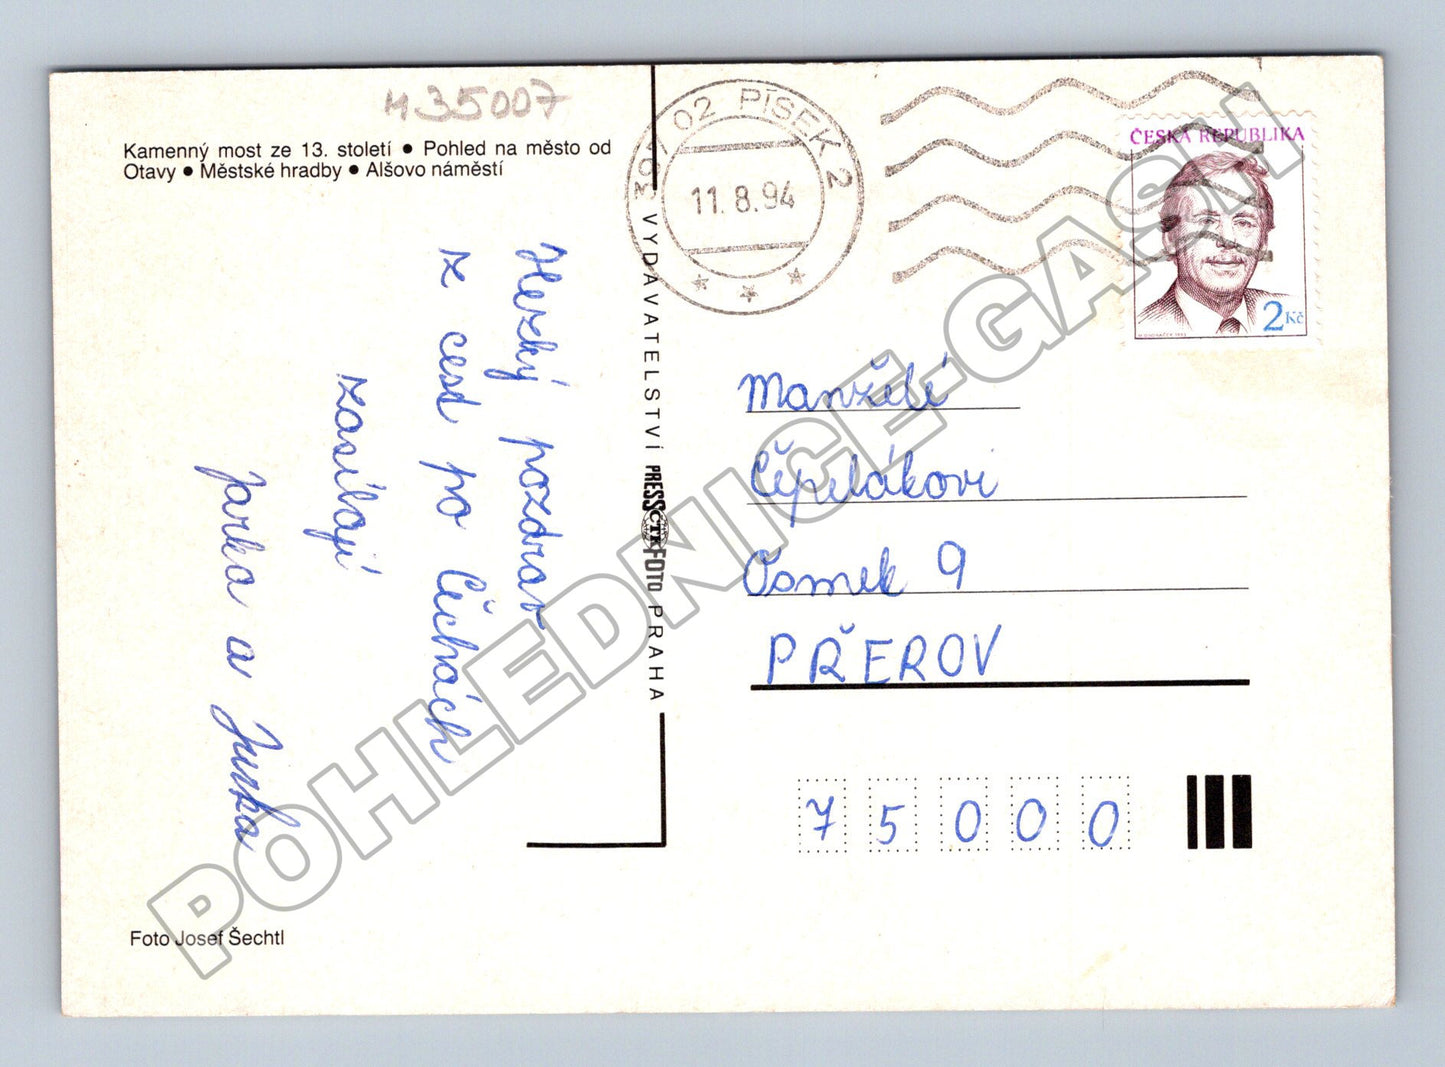 M35007
Kamenný most ze 13. století ● Pohled na město od
Otavy ● Městské hradby ● Alšovo náměstí
Hezký pozdrav
z cest po Čechách
zasílají
Jarka a Jirka
Foto Josef Šechtl
VYDAVATELSTVÍ PRESSFOTO PRAHA
ČTK
02 PÍSEK 2
11.8.94
ČESKÁ REPUBLIKA
2 Kč
Manželé
Čepelákovi
Osmek 9
PŘEROV
75000
POHLEDNICE-GASH